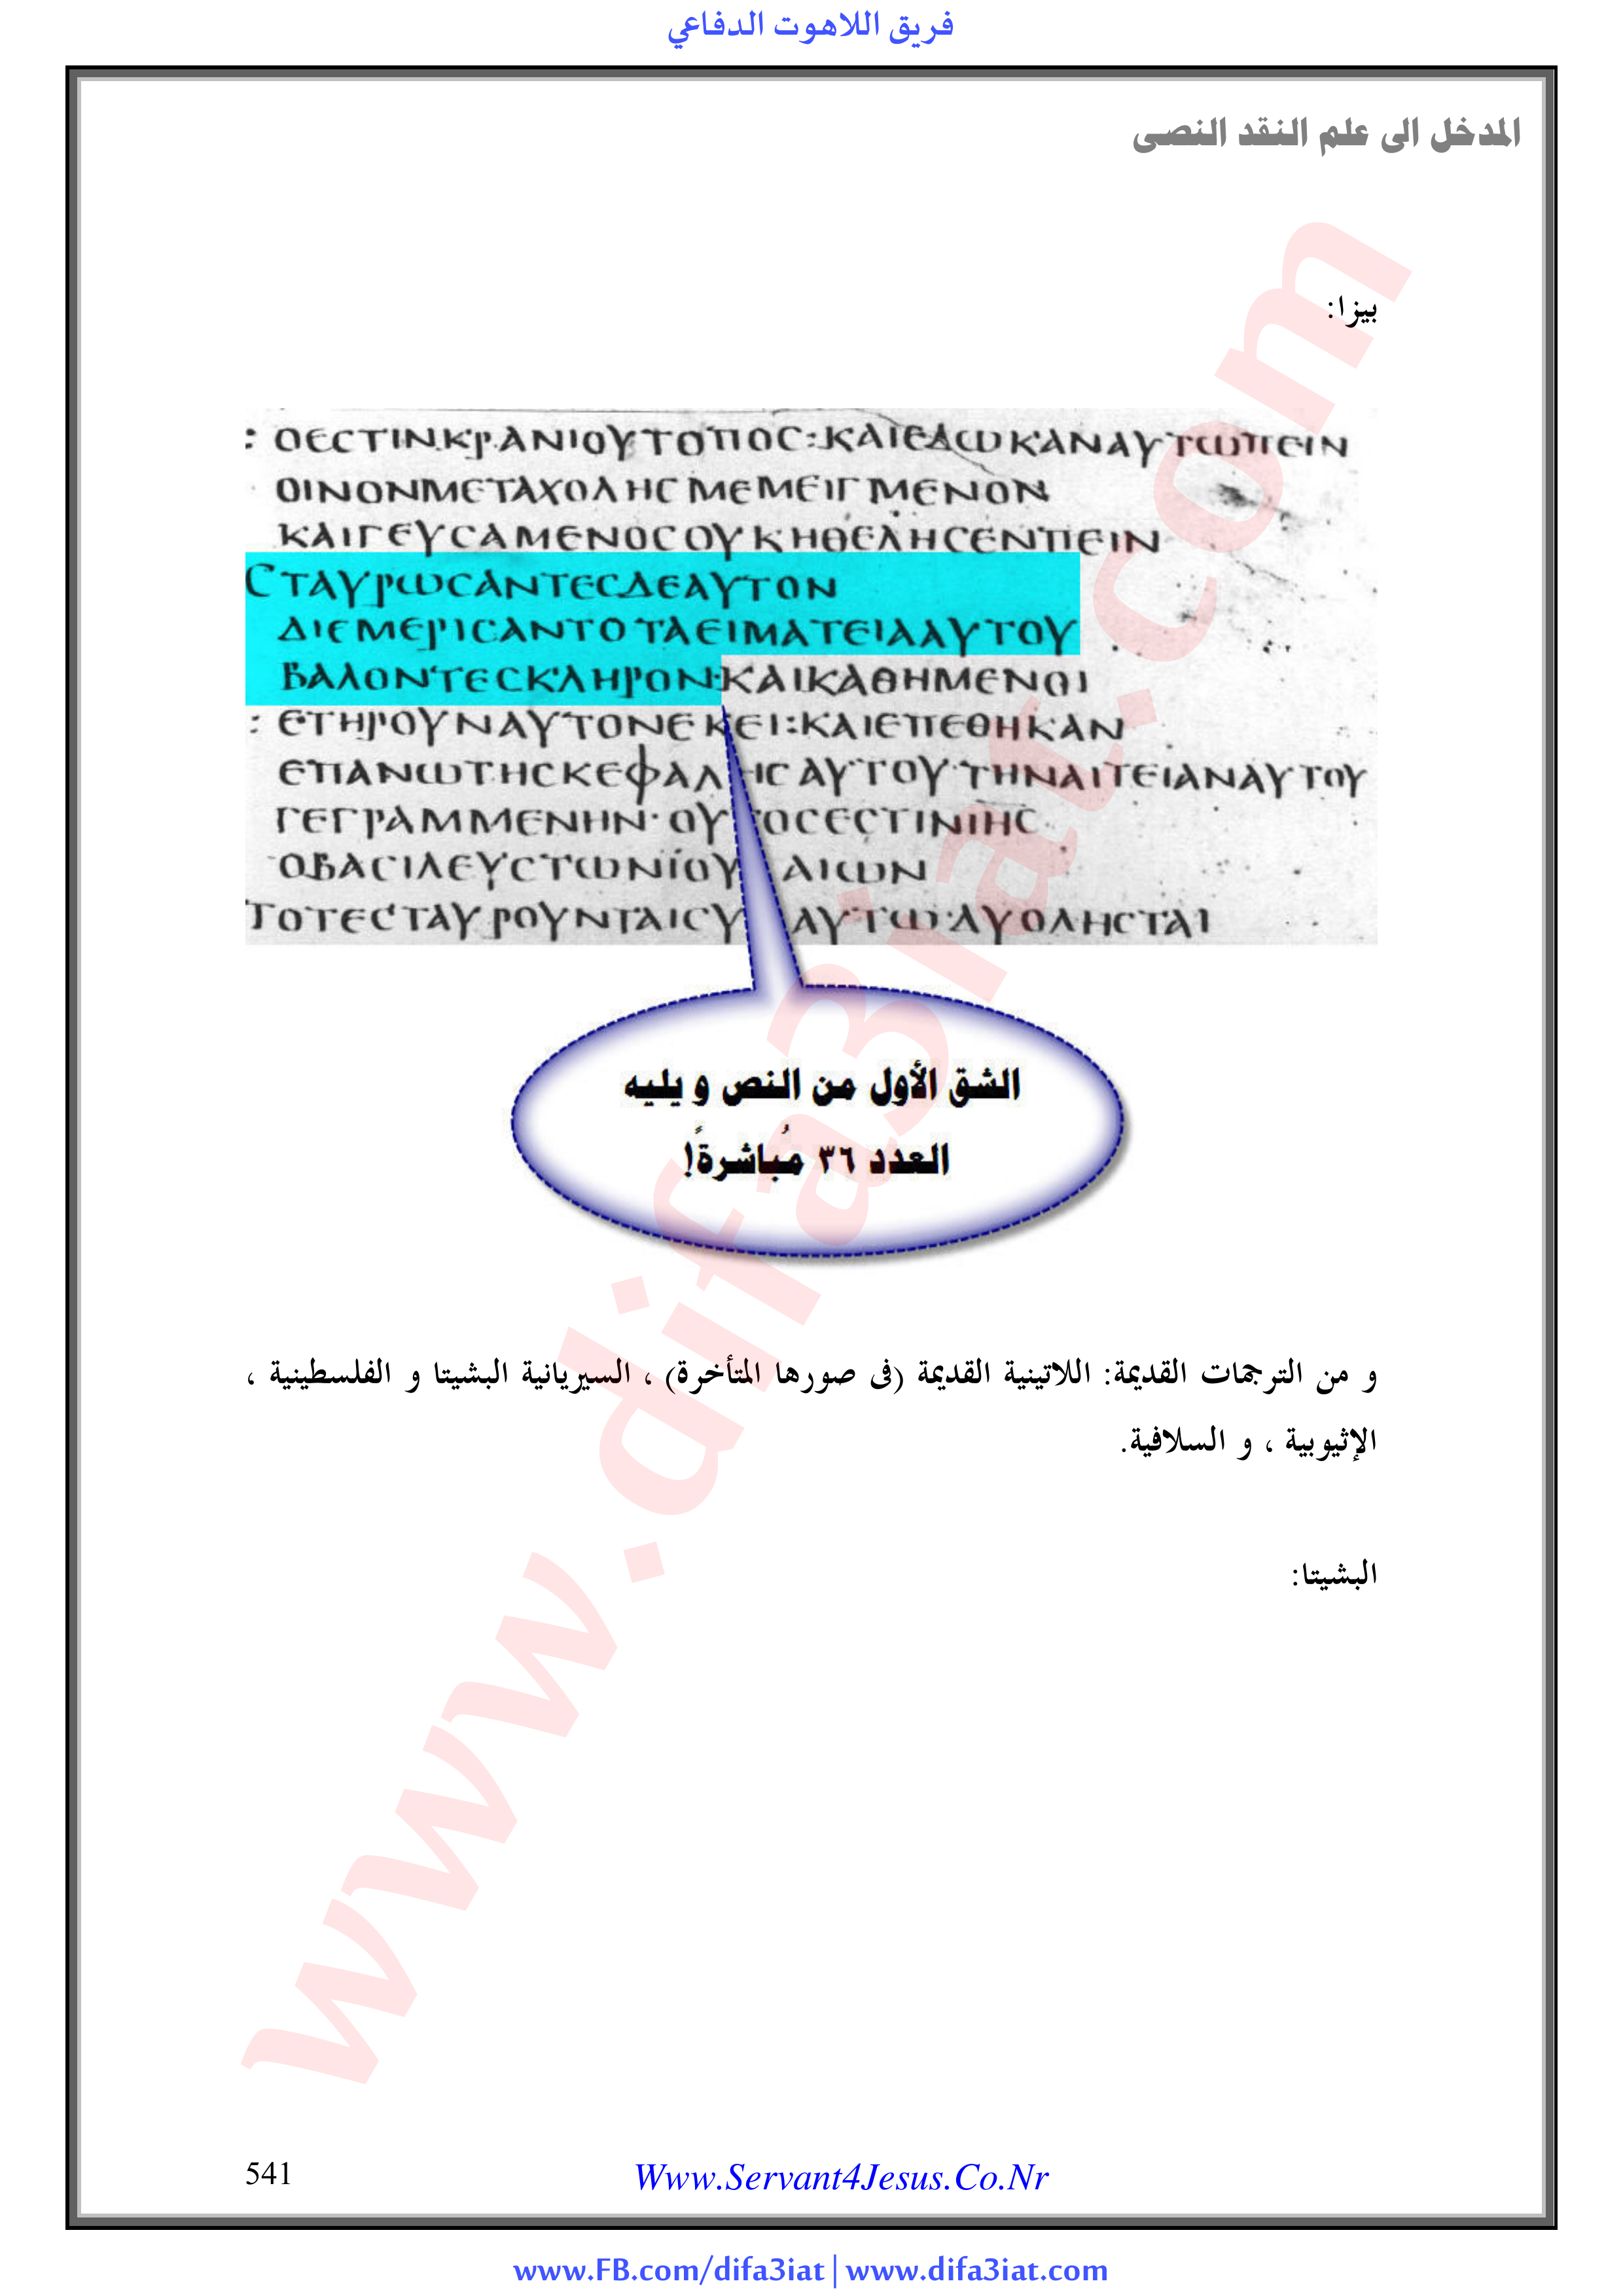 فريق اللاهوت الدفاعي
المدخل الى علم النقد النصى
بيزا:
: ΟЄCΤΙΝΚΡΑΝΙΟΥΤΟΠΟC:ΚΑΙЄΔΩΚΑΝΑΥΤΩΠЄΙΝ
ΟΙΝΟΝΜЄΤΑΧΟΛΗCΜЄΜЄΙΓΜЄΝΟΝ
ΚΑΙΓЄΥCΑΜЄΝΟCΟΥΚΗΘЄΛΗCЄΝΠЄΙΝ
CΤΑΥΡΩCΑΝΤЄCΔЄΑΥΤΟΝ
ΔΙЄΜЄΡΙCΑΝΤΟΤΑЄΙΜΑΤЄΙΑΑΥΤΟΥ
ΒΑΛΟΝΤЄCΚΛΗΡΟΝ·ΚΑΙΚΑΘΗΜЄΝΟΙ
: ЄΤΗΡΟΥΝΑΥΤΟΝЄΚЄΙ:ΚΑΙЄΠЄΘΗΚΑΝ
ЄΠΑΝΩΤΗCΚЄΦΑΛΗCΑΥΤΟΥ·ΤΗΝΑΙΤЄΙΑΝΑΥΤΟΥ
ΓЄΓΡΑΜΜЄΝΗΝ·ΟΥΤΟCЄCΤΙΝΙΗC
ΟΒΑCΙΛЄΥCΤΩΝΪΟΥ ΑΙΩΝ
ΤΟΤЄCΤΑΥΡΟΥΝΤΑΙCΥ ΑΥΤΩ·ΔΥΟΛΗCΤΑΙ
الشق الأول من النص و يليه
العدد ٣٦ مُباشرةً!
و من الترجمات القديمة: اللاتينية القديمة (فى صورها المتأخرة) ، السيريانية البشيتا و الفلسطينية ،
الإثيوبية ، و السلافية.
البشيتا:
www.difa3iat.com
541
Www.Servant4Jesus.Co.Nr
www.FB.com/difa3iat | www.difa3iat.com